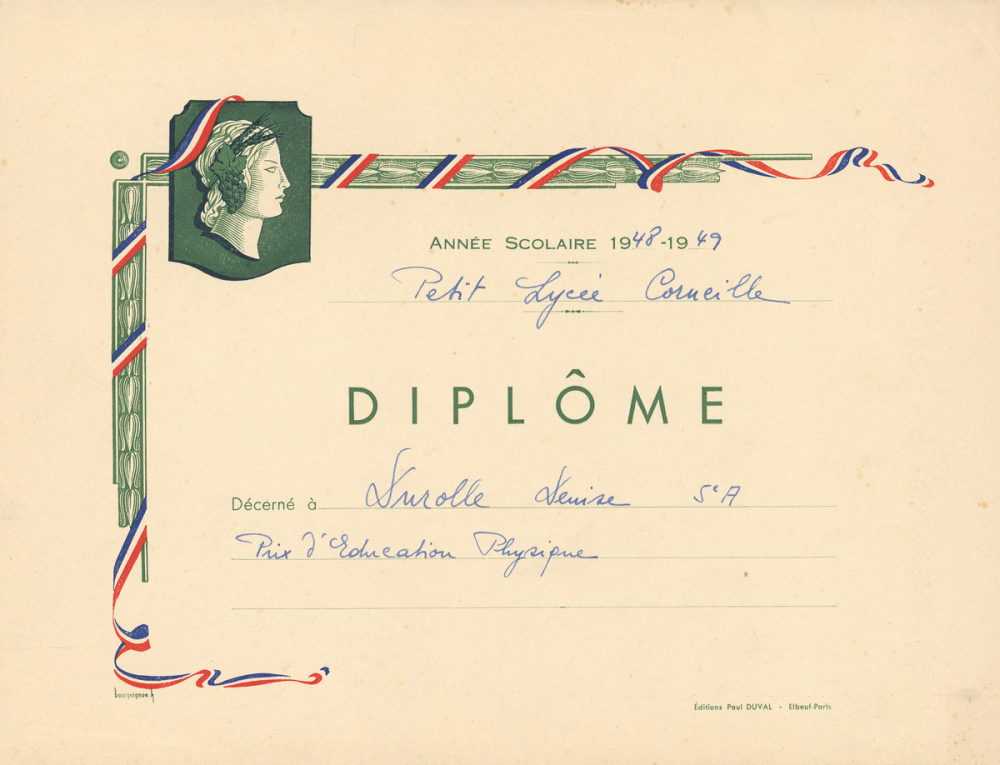 ANNÉE SCOLAIRE 1948-1949
Petit Lycée Corneille
DIPLÔME
Décerné à Durolle Denise 5e A
Prix d'Education Physique
bourguignon
Éditions Paul DUVAL - Elbeuf-Paris